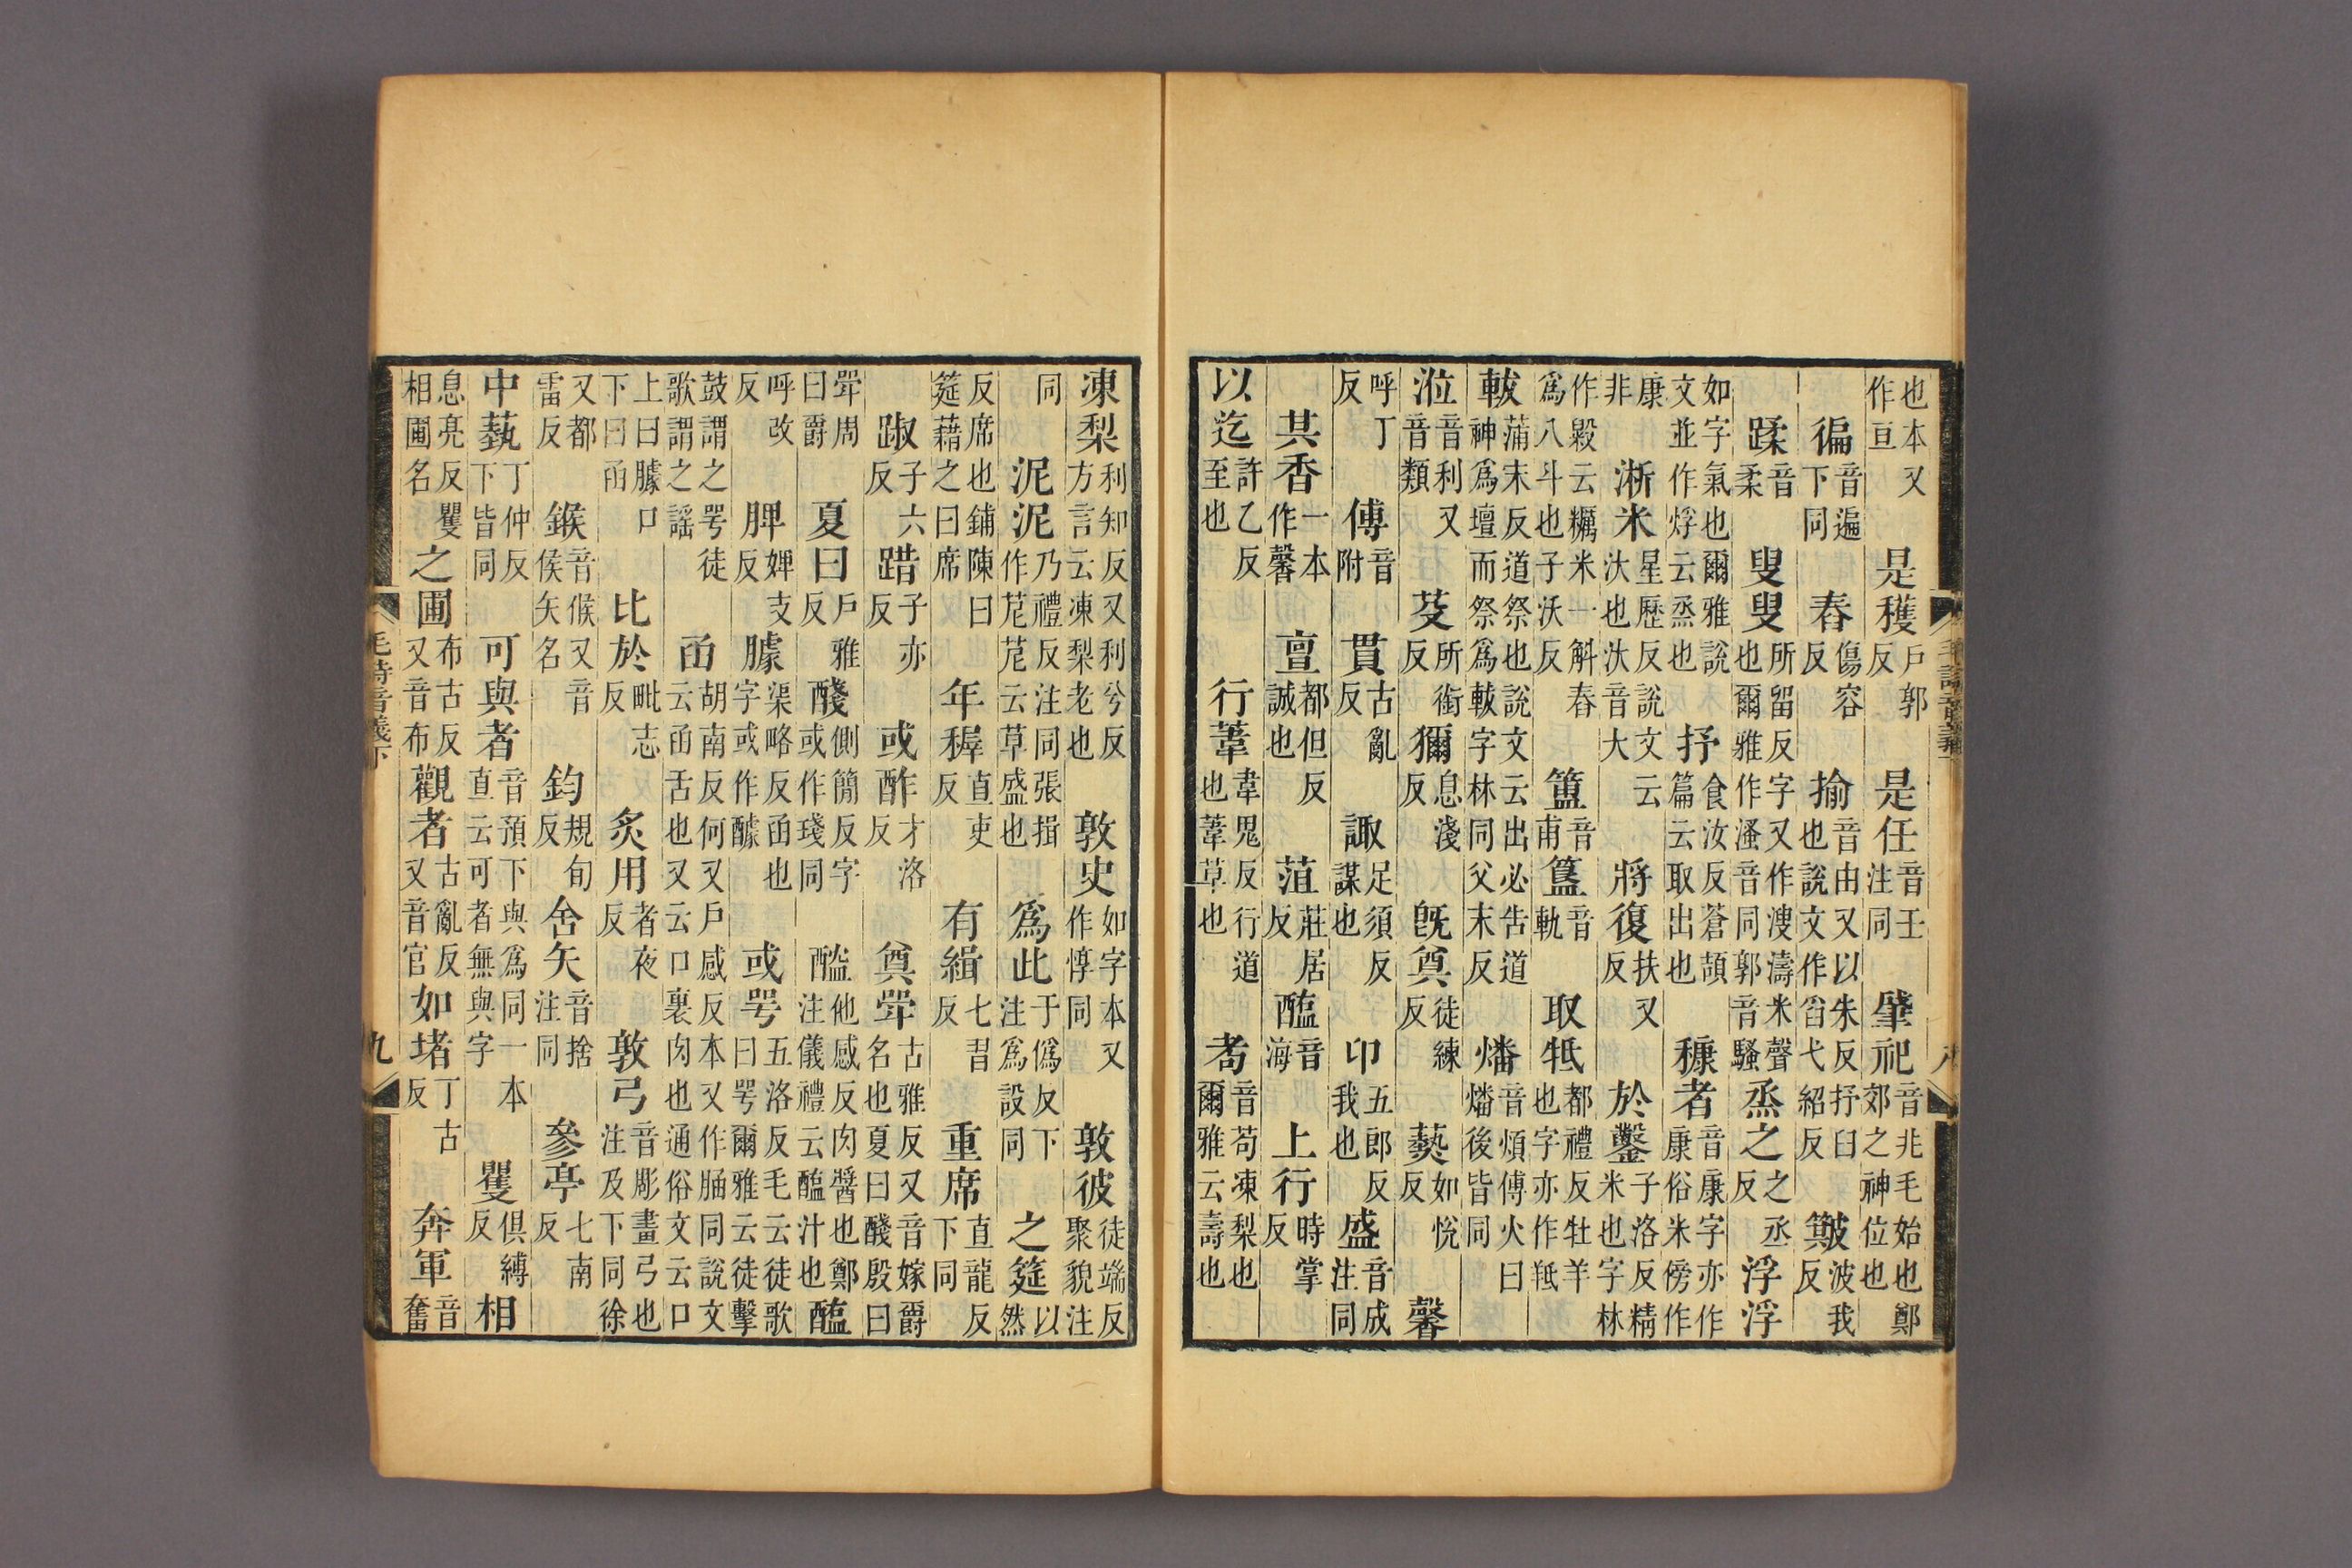 也本又作亘是穫戶郭反是任音壬注同肇祀音兆毛始也鄭郊之神位也
徧音遍下同舂傷容反揄音由又以朱反抒臼也說文作舀弋紹反簸波我反
蹂音柔叟叟所留反字又作溲濤米聲也爾雅作溞音同郭音騷烝之之丞反浮浮
如字氣也爾雅說文並作烰云烝也抒食汝反蒼頡篇云取出也穅者音康字亦作康俗米傍作
康非淅米星歷反說文云汏也汏音大將復扶又反於鑿子洛反精米也字林
作毇云糲米一斛舂爲八斗也子沃反簠音甫簋音軌取牴都禮反牡羊也字亦作羝
軷蒲末反道祭也說文云出必告道神爲壇而祭爲軷字林同父末反燔音煩傅火曰燔後皆同
涖音利又音類芟所銜反獮息淺反旣奠徒練反爇如悅反馨
呼丁反傅音附貫古亂反諏足須反謀也卬五郎反我也盛音成注同
其香一本作馨亶都但反誠也菹莊居反醢音海上行時掌反
以迄許乙反至也行葦韋鬼反行道也葦草也耇音苟凍梨也爾雅云壽也
凍梨利知反又利兮反方言云凍梨老也敦史如字本又作惇同敦彼徒端反聚貌注
同泥泥乃禮反注同張揖作苨苨云草盛也爲此于僞反下注爲設同之筵以然
反席也鋪陳曰筵藉之曰席年穉直吏反有緝七習反重席直龍反下同
踧子六反踖子亦反或酢才洛反奠斝古雅反又音嫁爵名也夏曰醆殷曰
斝周曰爵夏曰戶雅反醆側簡反字或作琖同醓他感反肉醬也鄭注儀禮云醓汁也醢
呼改反脾婢支反臄渠略反函也字或作醵或咢五洛反毛云徒歌曰咢爾雅云徒擊
鼓謂之咢徒歌謂之謠函胡南反何又戶感反本又作肣同說文云函舌也又云口裏肉也通俗文云口
上曰臄口下曰函比於毗志反炙用者夜反敦弓音彫畫弓也注及下同徐
又都雷反鍭音候又音侯矢名鈞規旬反舍矢音捨注同參亭七南反
中蓺丁仲反下皆同可與者音預下與爲同一本直云可者無與字矍俱縛反相
息亮反矍相圃名之圃布古反又音布觀者古亂反又音官如堵丁古反奔軍音奮
毛詩音義下
九